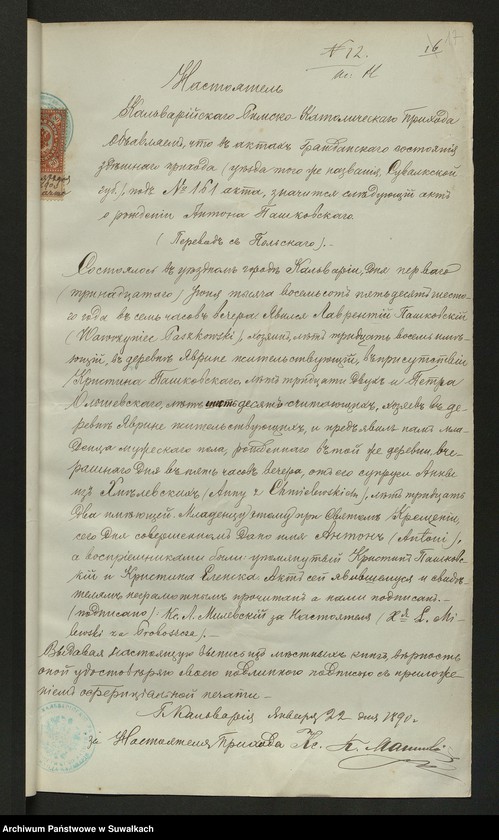 № 12.
16
17
Настоятель
Кальварійскаго Римско-Католическаго Прихода
объявляетъ, что въ актахъ гражданскаго состоянія
здѣшняго прихода (уѣзда того же названія, Сувалкской
губ.), подъ № 161 акта, значится слѣдующій актъ
о рожденіи Антона Пашковскаго.
(Переводъ съ Польскаго). –
Состоялось въ уѣздномъ городѣ Кальваріи, дня перваго
(тринадцатаго) Іюня тысяча восемьсотъ пятьдесятъ шесто-
го года въ семь часовъ вечера. Явился Лаврентій Пашковскій
(Wawrzyniec Paszkowski), хозяинъ, лѣтъ тридцать восемь имѣ-
ющій, въ деревнѣ Явринѣ жительствующій, въ присутствіи
Кристина Пашковскаго, лѣтъ тридцати двухъ и Петра
Олешевскаго, лѣтъ десять считающихъ, хозяевъ въ де-
ревнѣ Явринѣ жительствующихъ, и предъявилъ намъ мла-
денца мужескаго пола, рожденнаго въ той же деревни, вче-
рашняго дня въ пять часовъ вечера, отъ его супруги Анны
изъ Хмѣлевскихъ (Anny z Chmielewskich), лѣтъ тридцать
два имѣющей. Младенцу этому при Святомъ Крещеніи,
сего дня совершенномъ дано имя Антонъ (Antoni),
а воспріемниками были упомянутый Кристинъ Пашков-
скій и Кристина Актъ сей явившемуся и свидѣ-
телямъ неграмотнымъ прочитанъ а нами подписанъ. –
(подписано) Кс. Л. Милевскій за Настоятеля (Xs L. Mi-
lewski za Proboszcza). –
Выдавая настоящую выпись изъ мѣстныхъ книгъ, вѣрность
оной удостовѣряю моею подписью съ приложе-
ніемъ оффиціальной печати. –
Г. Кальварія Января 22 дня 1890 г.
за Настоятеля Прихода Кс.
Archiwum Państwowe w Suwałkach